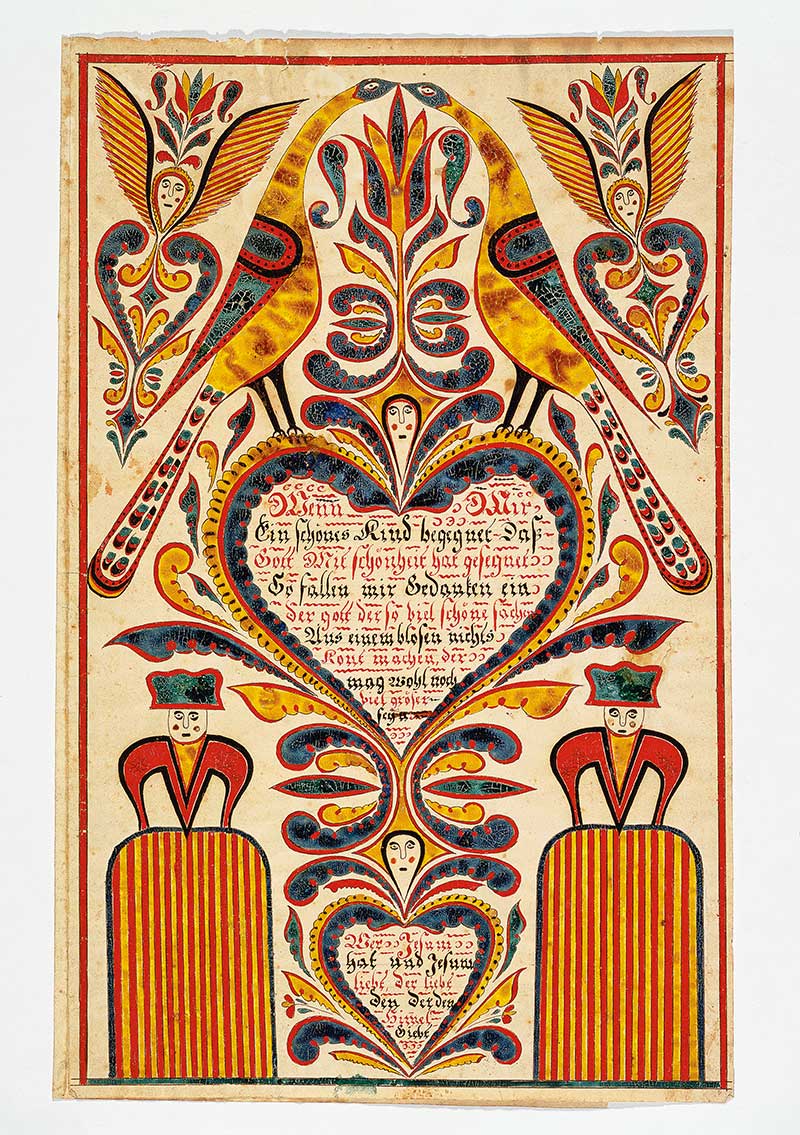 Wenn Mir
Ein schönes Kind begegnet Daß
Gott Mit schönheit hat gesegnet
So fallen mir Gedanken ein
der gott der so viel schöne sachen
Aus einem blosen nichts
Kont machen, der
mag wohl noch
viel gröser
seyn
Wer Jesum
hat und Jesum
liebt, der liebt
den der den
Himel
Giebt